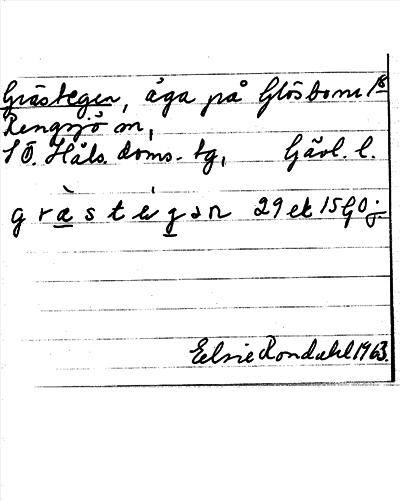 Grästegen, åga på Glösbom 18
Rengsjö sn,
SÖ. Häls. doms. tg, Gävl. l.
gràstégən 29 ek 15G0j
Eelsie Rondahl 1963.